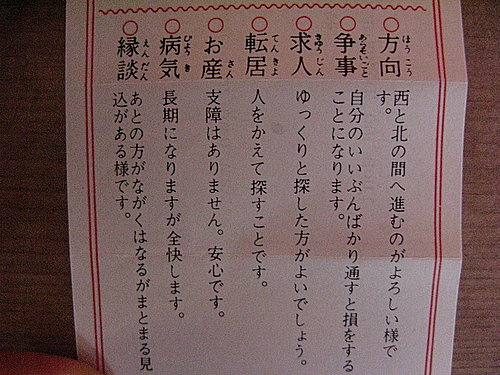 ○方向 西と北の間へ進むのがよろしい様で
す。
○争事 自分のいいぶんばかり通すと損をする
ことになります。
○求人 ゆっくりと探した方がよいでしょう。
○転居 人をかえて探すことです。
○お産 支障はありません。安心です。
○病気 長期になりますが全快します。
○縁談 あとの方がながくはなるがまとまる見
込がある様です。